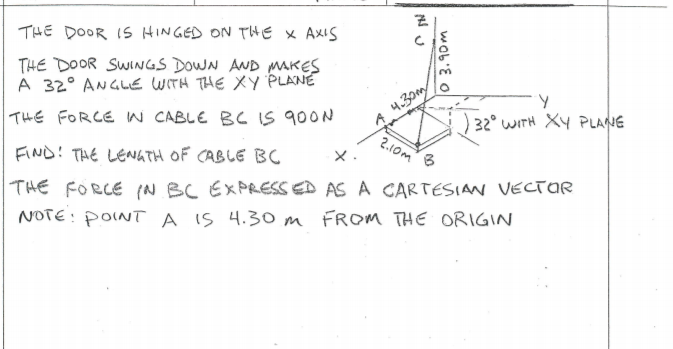 THE DOOR IS HINGED ON THE X AXIS
THE DOOR SWINGS DOWN AND MAKES
A 32° ANGLE WITH THE XY PLANE
THE FORCE IN CABLE BC IS 900N
FIND: THE LENGTH OF CABLE BC
THE FORCE IN BC EXPRESSED AS A CARTESIAN VECTOR
NOTE: POINT A IS 4.30 m FROM THE ORIGIN
Z
C
3.90m
O
4.30m
Y
A
32° WITH XY PLANE
2.10m
X
B